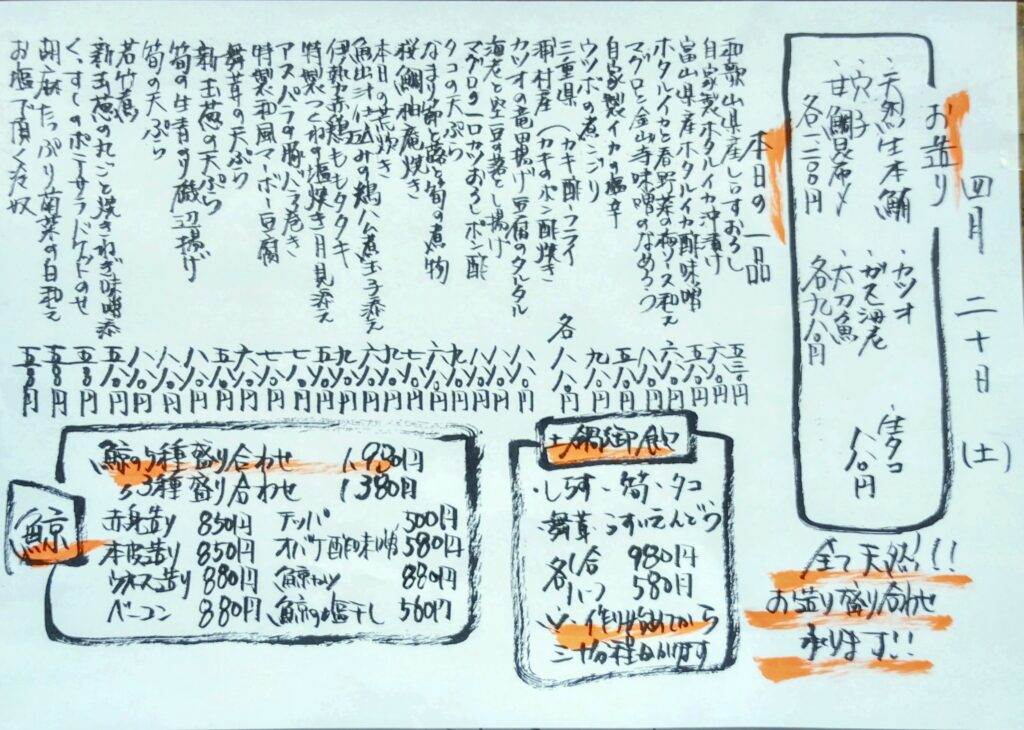 四月 二十日 (土)
お造り
・天然生本鮪
・穴子
・甘鯛昆布〆
各一、二〇〇円
・カツオ
・ガス海老
・太刀魚
各九八〇円
・生タコ
八八〇円
全て天然!!
お造り盛り合わせ
承ります!!
本日の一品
和歌山県産しらすおろし 五三〇円
自家製ホタルイカ沖漬け 六八〇円
富山県産ホタルイカ酢味噌
ホタルイカと春野菜の梅ソース和え
マグロと金山寺味噌のなめろう
自家製イカの塩辛 五八〇円
ウツボの煮こごり 九八〇円
三重県 (カキ酢・フライ
浦村産 (カキのポン酢焼き 各 八八〇円
カツオの竜田揚げ豆腐のタルタル
海老と空豆の落とし揚げ
マグロの一口カツおろしポン酢
タコの天ぷら
なまり節と蕗と筍の煮物
桜鯛柚庵焼き
本日の荒炊き
魚出汁仕込みの鶏ハム煮玉子添え
伊勢赤鶏ももタタキ
特製つくねの塩焼き月見添え
アスパラの豚バラ巻き
特製和風マーボー豆腐
舞茸の天ぷら
新玉葱の天ぷら
筍の生青のり磯辺揚げ
筍の天ぷら
若竹煮
新玉葱の丸ごと焼きねぎ味噌添え
胡麻たっぷり菊菜の白和え
お塩で頂く冷奴
土鍋御飯
・しらす・筍・タコ
・舞茸・うすいえんどう
各1合 980円
各ハーフ 580円
※作り始めてから
三十分程かかります
鯨
鯨の5種盛り合わせ 1,980円
〃3種盛り合わせ 1,380円
赤身造り 850円 テッパ 500円
本皮造り 850円 オバケ酢味噌 580円
ウネス造り 880円 鯨カツ 880円
ベーコン 880円 鯨の塩干し 560円